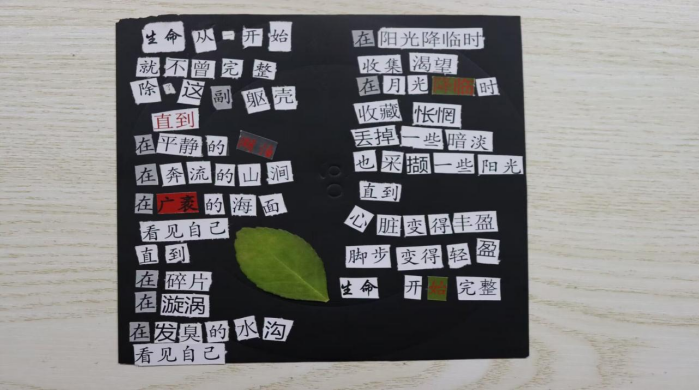 生命从一开始
就不曾完整
除了这副躯壳
直到
在平静的
在奔流的山涧
在广袤的海面
看见自己
直到
在碎片
在漩涡
在发臭的水沟
看见自己
在阳光降临时
收集渴望
在月光降临时
收藏怅惘
丢掉一些暗淡
也采撷一些阳光
直到
心脏变得丰盈
脚步变得轻盈
生命开始完整